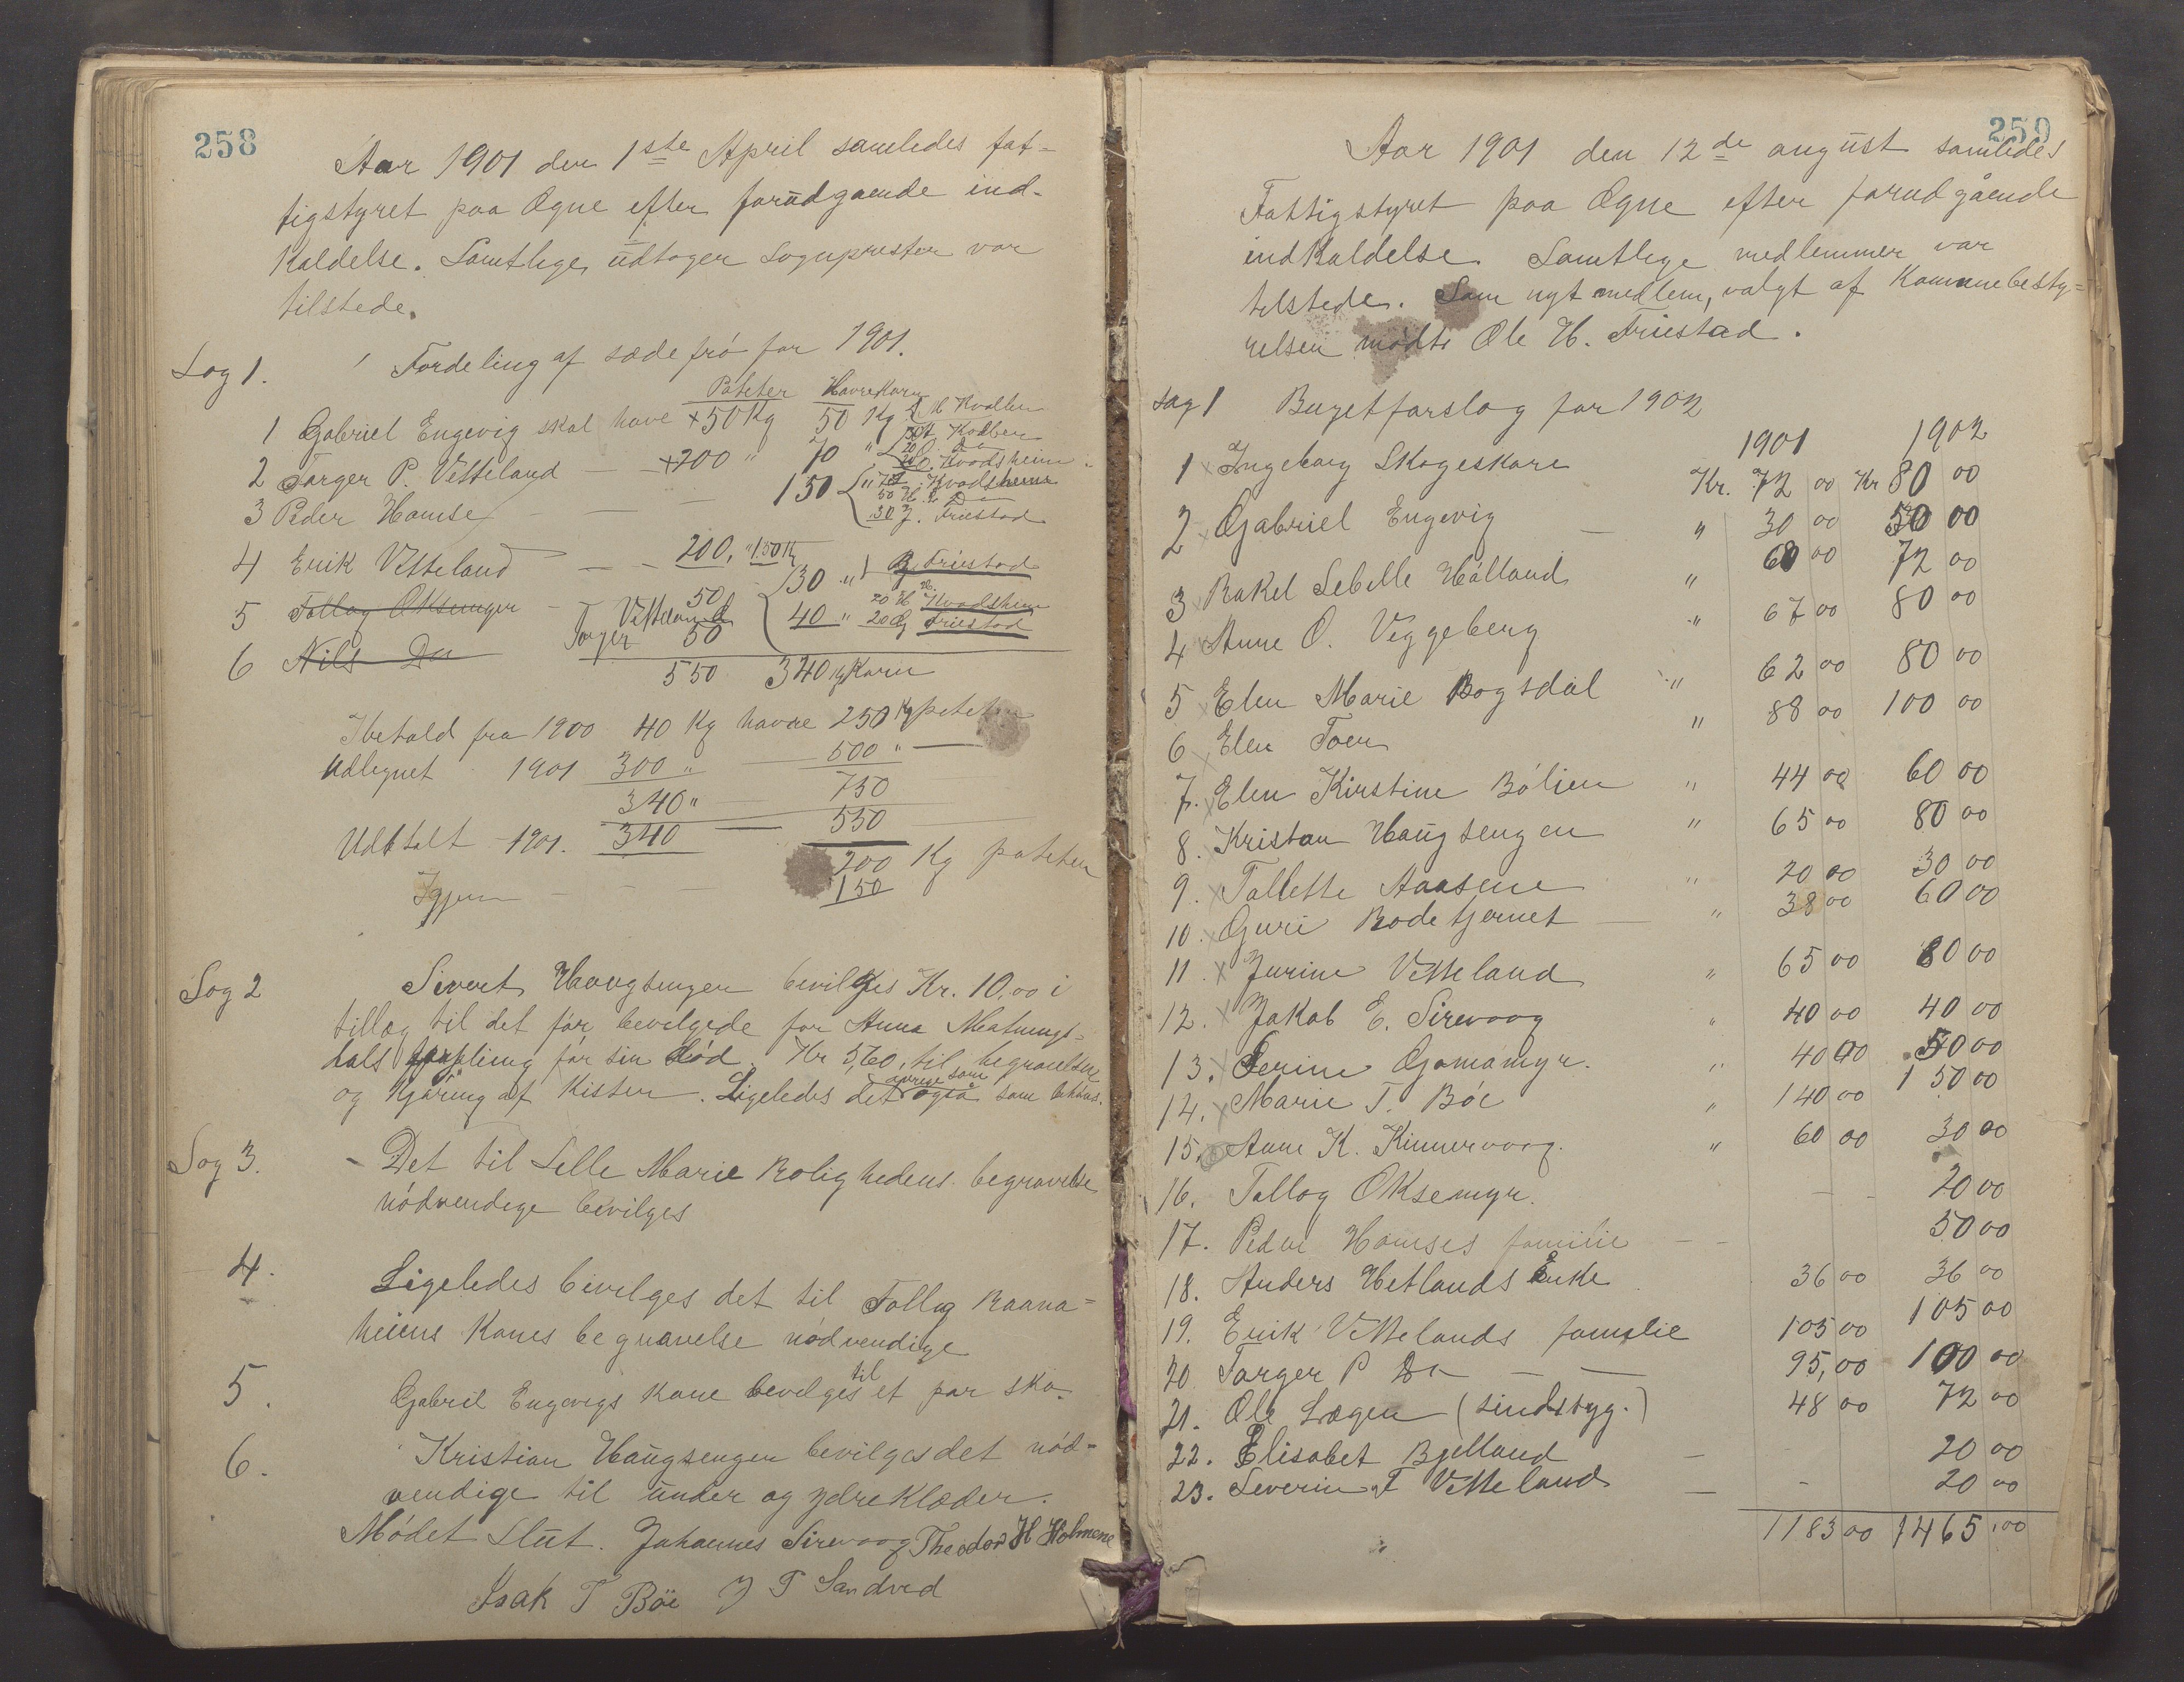 258
Aar 1901 den 1ste April samledes fat-
tigstyret paa Ogne efter forudgaaende ind-
kaldelse. Samtlige, undtagen Sognpresten var
tilstede.
Sag 1. Fordeling af sædefrö for 1901.
Poteter Havrekorn
1 Gabriel Engevig skal have + 50 Kg 50 Kg
2 Torger P. Vetteland — +200 " 70 "
O. Kvadsheim
3 Peder Homse — — — 150
30 J. Friestad
4 Erik Vetteland — — 200, "
50 30 " Friestad
5 Tollag Oksemyr Vetteland 40 " 20 Friestad
6 Nils Do Torger 50
550 340 Kg Korn
Ibehold fra 1900 40 Kg havre 250 Kg poteter
Udlignet 1901 300 " — 500 " —
340 " 750
Udbtalt 1901. 340 — 550
200 Kg poteter
Igjen — — — 150
Sag 2 Sivert Haugsengen bevilges Kr. 10,00 i
tillæg til det för bevilgede for Anna
för sin död. Kr 5,60, til begravelsen
og kjöring af Kisten. Ligeledes det også som
Sag 3. - Det til Lelle Marie Rolighedens begravelse
nödvendige bevilges
4. Ligeledes bevilges det til Tollag Raana=
heiens Kones begravelse nödvendige
5. Gabril Engevigs Kone bevilges til et par sko.
6. Kristian Haugsengen bevilges det nöd=
vendige til under og ydreklæder.
Mödet Slut. Johannes Sirevaag Theodor H Holmene
Isak T Böe J T Sandved
259
Aar 1901 den 12de august samledes
Fattigstyret paa Ogne efter forudgående
indkaldelse. Samtlige medlemmer var
tilstede. Som nyt medlem, valgt af Kommunebesty=
relsen mödte Ole H. Friestad.
sag 1 Buzetforslag for 1902
1901 1902
1 x Ingeborg Skogeskare Kr. 72 00 Kr 80 00
2 x Gabriel Engevig — " 30 00 50 00
3 Rakel Sebelle Hålland " 60 00 72 00
4 x Anne O. Veggeberg " 67 00 80 00
5 x Elen Marie Bogsdal " 62 00 80 00
6 x Elen Toen " 88 00 100 00
7. x Elen Kirstine Böljen " 44 00 60 00
8. x Kristan Haugsengen " 65 00 80 00
9. x Tallette Aaasene " 20 00 30 00
10. x Guri Bodetjernet — " 38 00 60 00
11. x Jurine Vetteland " 65 00 80 00
12. x Jakob E. Sirevaag " 40 00 40 00
13. x Serine Gomamyr. " 40 00 50 00
14. x Marie T. Böe " 140 00 150 00
15. Anne K. Kinnervaag. " 60 00 30 00
16. Tollag Oksemyr. — — 20 00
17. Peder Homses familie — — 50 00
18. Anders Hetlands Enke 36 00 36 00
19. Erik Vettelands familie 105 00 105 00
20 Torger P Do — — 95,00 100 00
21. Ole Lægen (sindssyg.) 48 00 72 00
22. Elisabet Bjelland — - 20 00
23. Severine T Vetteland — - 20 00
1183 00 1465,00